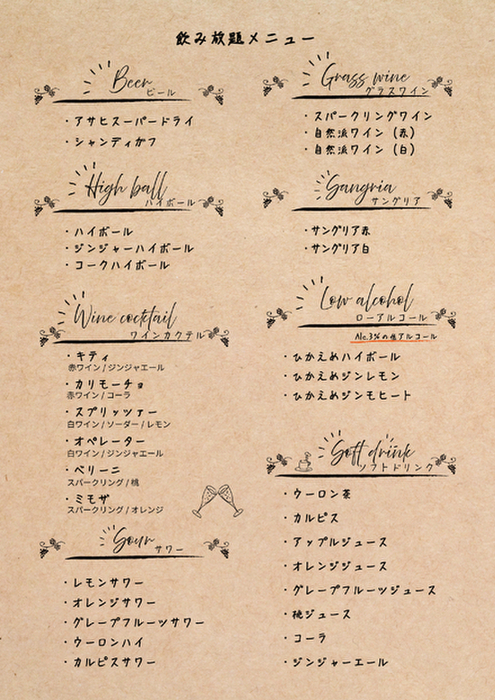 飲み放題メニュー
Beer
ビール
・アサヒスーパードライ
・シャンディガフ
High ball
ハイボール
・ハイボール
・ジンジャーハイボール
・コークハイボール
Wine cocktail
ワインカクテル
・キティ
赤ワイン / ジンジャエール
・カリモーチョ
赤ワイン / コーラ
・スプリッツァー
白ワイン / ソーダー / レモン
・オペレーター
白ワイン / ジンジャエール
・ベリーニ
スパークリング / 桃
・ミモザ
スパークリング / オレンジ
Sour
サワー
・レモンサワー
・オレンジサワー
・グレープフルーツサワー
・ウーロンハイ
・カルピスサワー
Grass wine
グラスワイン
・スパークリングワイン
・自然派ワイン (赤)
・自然派ワイン (白)
Sangria
サングリア
・サングリア赤
・サングリア白
Low alcohol
ローアルコール
Alc.3%の低アルコール
・ひかえめハイボール
・ひかえめジンレモン
・ひかえめジンモヒート
Soft drink
ソフトドリンク
・ウーロン茶
・カルピス
・アップルジュース
・オレンジジュース
・グレープフルーツジュース
・桃ジュース
・コーラ
・ジンジャーエール